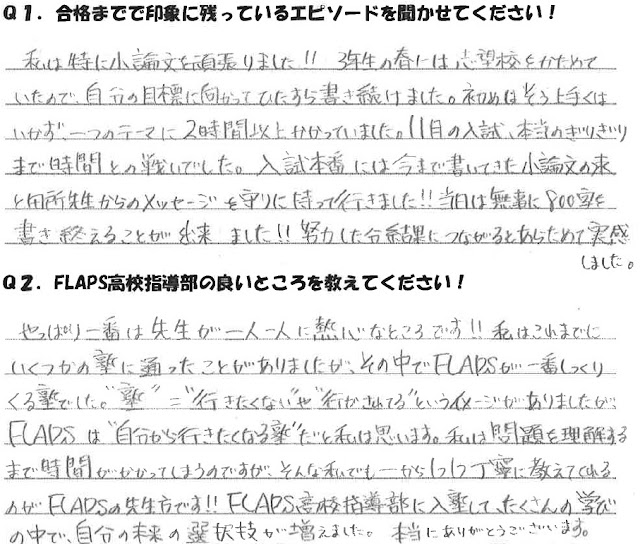 Q1．合格までで印象に残っているエピソードを聞かせてください！
私は特に小論文を頑張りました!! 3年生の春には志望校をかためて
いたので、自分の目標に向かってひたすら書き続けました。初めはそう上手くは
いかず、一つのテーマに2時間以上かかっていました。11月の入試、本当のぎりぎり
まで時間との戦いでした。入試本番には今まで書いてきた小論文の束
と田所先生からのメッセージを守りに持って行きました!! 当日は無事に800字を
書き終えることが出来ました!! 努力した分結果につながるとあらためて実感
しました。
Q2．FLAPS高校指導部の良いところを教えてください！
やっぱり一番は先生が一人一人に熱心なところです!! 私はこれまでに
いくつかの塾に通ったことがありましたが、その中でFLAPSが一番しっくり
くる塾でした。"塾"="行きたくない"や"行かされてる"というイメージがありましたが、
FLAPSは"自分から行きたくなる塾"だと私は思います。私は問題を理解する
まで時間がかかってしまうのですが、そんな私でも一から1つ1つ丁寧に教えてくれる
のがFLAPSの先生方です!! FLAPS高校指導部に入塾して、たくさんの学び
の中で、自分の未来の選択枝が増えました。本当にありがとうございます。